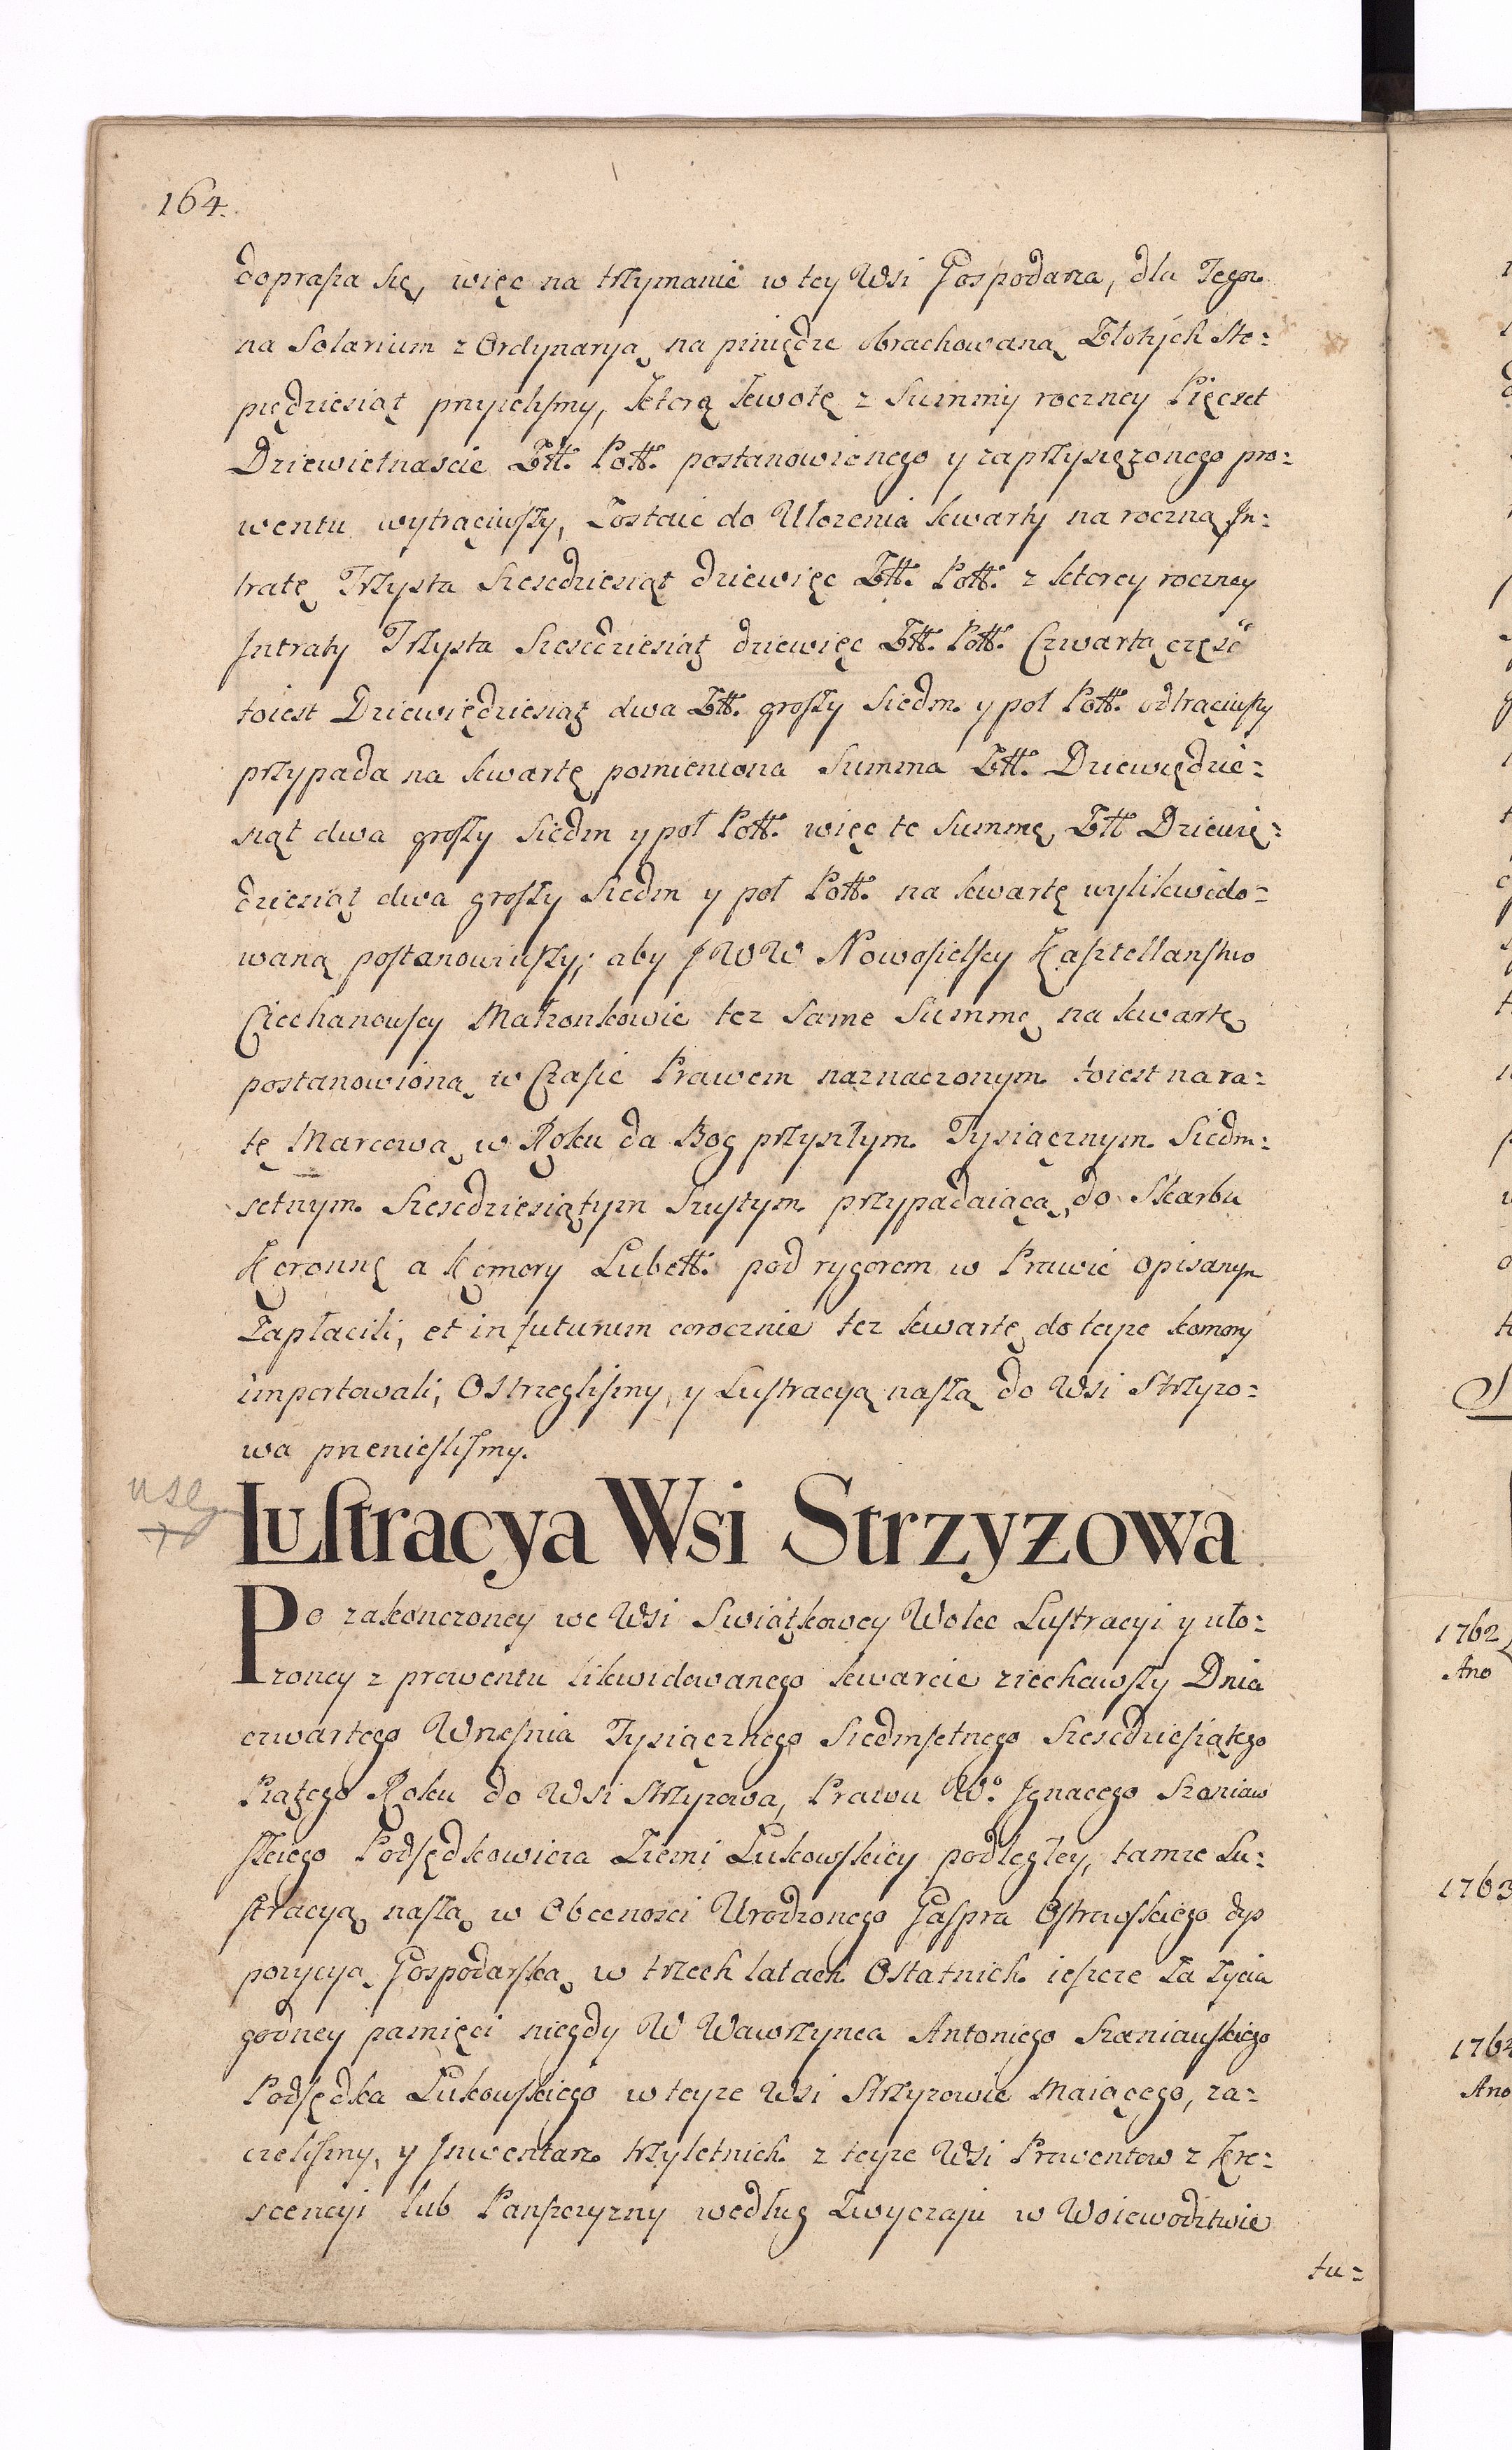 164.
doprasza się, więc na trzymanie w tey Wsi Gospodarza, dla Tegoz
na Solarium z Ordynaryą na piniędze obrachowaną Złotych Sto=
pięcdziesiąt przyielismy, ktorą kwotę z Summy roczney Pięcset
Dziewietnascie Ztt. Pott. postanowionego y zaprzysięzonego pro=
wentu wytrąciwszy, Zostaie do Ulozenia kwarty na roczną In=
tratę Trzysta Szescdziesiąt dziewięc Ztt. Pott. z ktorey roczney
Intraty Trzysta Szescdziesiąt dziewięc Ztt. Pott. Czwartą częsc
toiest Dziewiędziesiąt dwa Ztt. groszy Siedm y pol Pott. odtrąciwszy
przypada na kwartę pomieniona Summa Ztt. Dziewiędzie=
siąt dwa groszy Siedm y pol Pott. więc te Summę Ztt Dziewię=
dziesiąt dwa groszy Siedm y pol Pott. na kwartę wylikwido=
waną postanowiwszy; aby JWW Nowosielscy Kasztellanstwo
Ciechanowscy Malzonkowie tez Same Summę na kwartę
postanowioną w Czasie Prawem naznaczonym toiest na ra=
tę Marcową w Roku da Bog przyszłym Tysiącznym Siedm=
setnym Szescdziesiątym Szustym przypadaiącą do Skarbu
Koronnę a Komory Lubett. pod rygorem w Prawie opisanym
Zapłacili, et in futurum corocznie tez kwartę do teyze komory
importowali, Ostrzeglismy, y Lustracyą naszą do Wsi Strzyzo=
wa przenieslismy.
Lustracya Wsi Strzyzowa
Po zakonczoney we Wsi Swiątkowey Wolce Lustracyi y uło=
zoney z prowentu likwidowanego kwarcie ziechawszy Dnia
czwartego Wrzesnia Tysiącznego Siedmsetnego Szescdziesiątego
Piątego Roku do Wsi Strzyzowa, Prawu W.° Ignacego Szaniaw
skiego Podsędkowicza Ziemi Lukowskiey podległey, tamze Lu=
stracyą naszą w Obecnosci Urodzonego Gaspra Ostrowskiego dys
pozycyą Gospodarską w trzech latach Ostatnich ieszcze Za zycia
godney pamięci niegdy W Wawrzynca Antoniego Szaniawskiego
Podsędka Lukowskiego w teyze Wsi Strzyzowie Maiącego, za=
czelismy, y Inwentarz trzyletnich z teyze Wsi Prowentow z Kre=
scencyi lub Panszczyzny według Zwyczaju w Woiewodztwie
tu=
1762
Ano
1763
1764
Ano